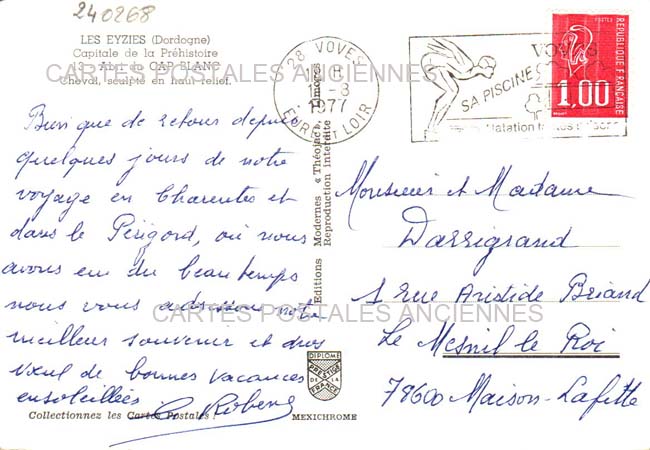 240268
LES EYZIES (Dordogne)
Capitale de la Préhistoire
13 - Abri du CAP BLANC
Cheval, sculpté en haut-relief.
CARTES POSTALES ANCIENNES
Bien que de retour depuis
quelques jours de notre
voyage en Charentes et
dans le Périgord, où nous
avons eu du beau temps
nous vous adressons notre
meilleur souvenir et nos
vœux de bonnes vacances
ensoleillées
Collectionnez les Cartes Postales !
Editions Modernes « Théojac », Limoges
Reproduction interdite
DIPLOME
PRESTIGE
DE LA
FRANCE
MEXICHROME
28 VOVES
1977
EURE ET LOIR
VOVES
SA PISCINE
Natation
POSTES
REPUBLIQUE FRANÇAISE
1,00
Monsieur et Madame
Darrigrand
1 rue Aristide Briand
Le Mesnil le Roi
78600 Maison-Lafitte
CARTES POSTALES ANCIENNES